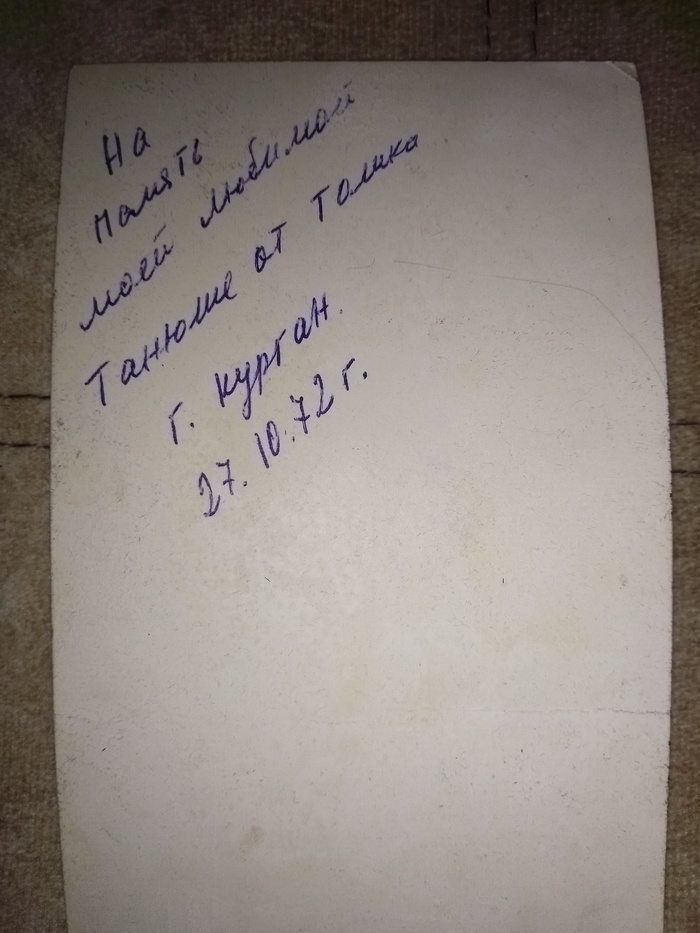 На
память
моей любимой
Танюше от Толика
г. Курган.
27.10.72 г.